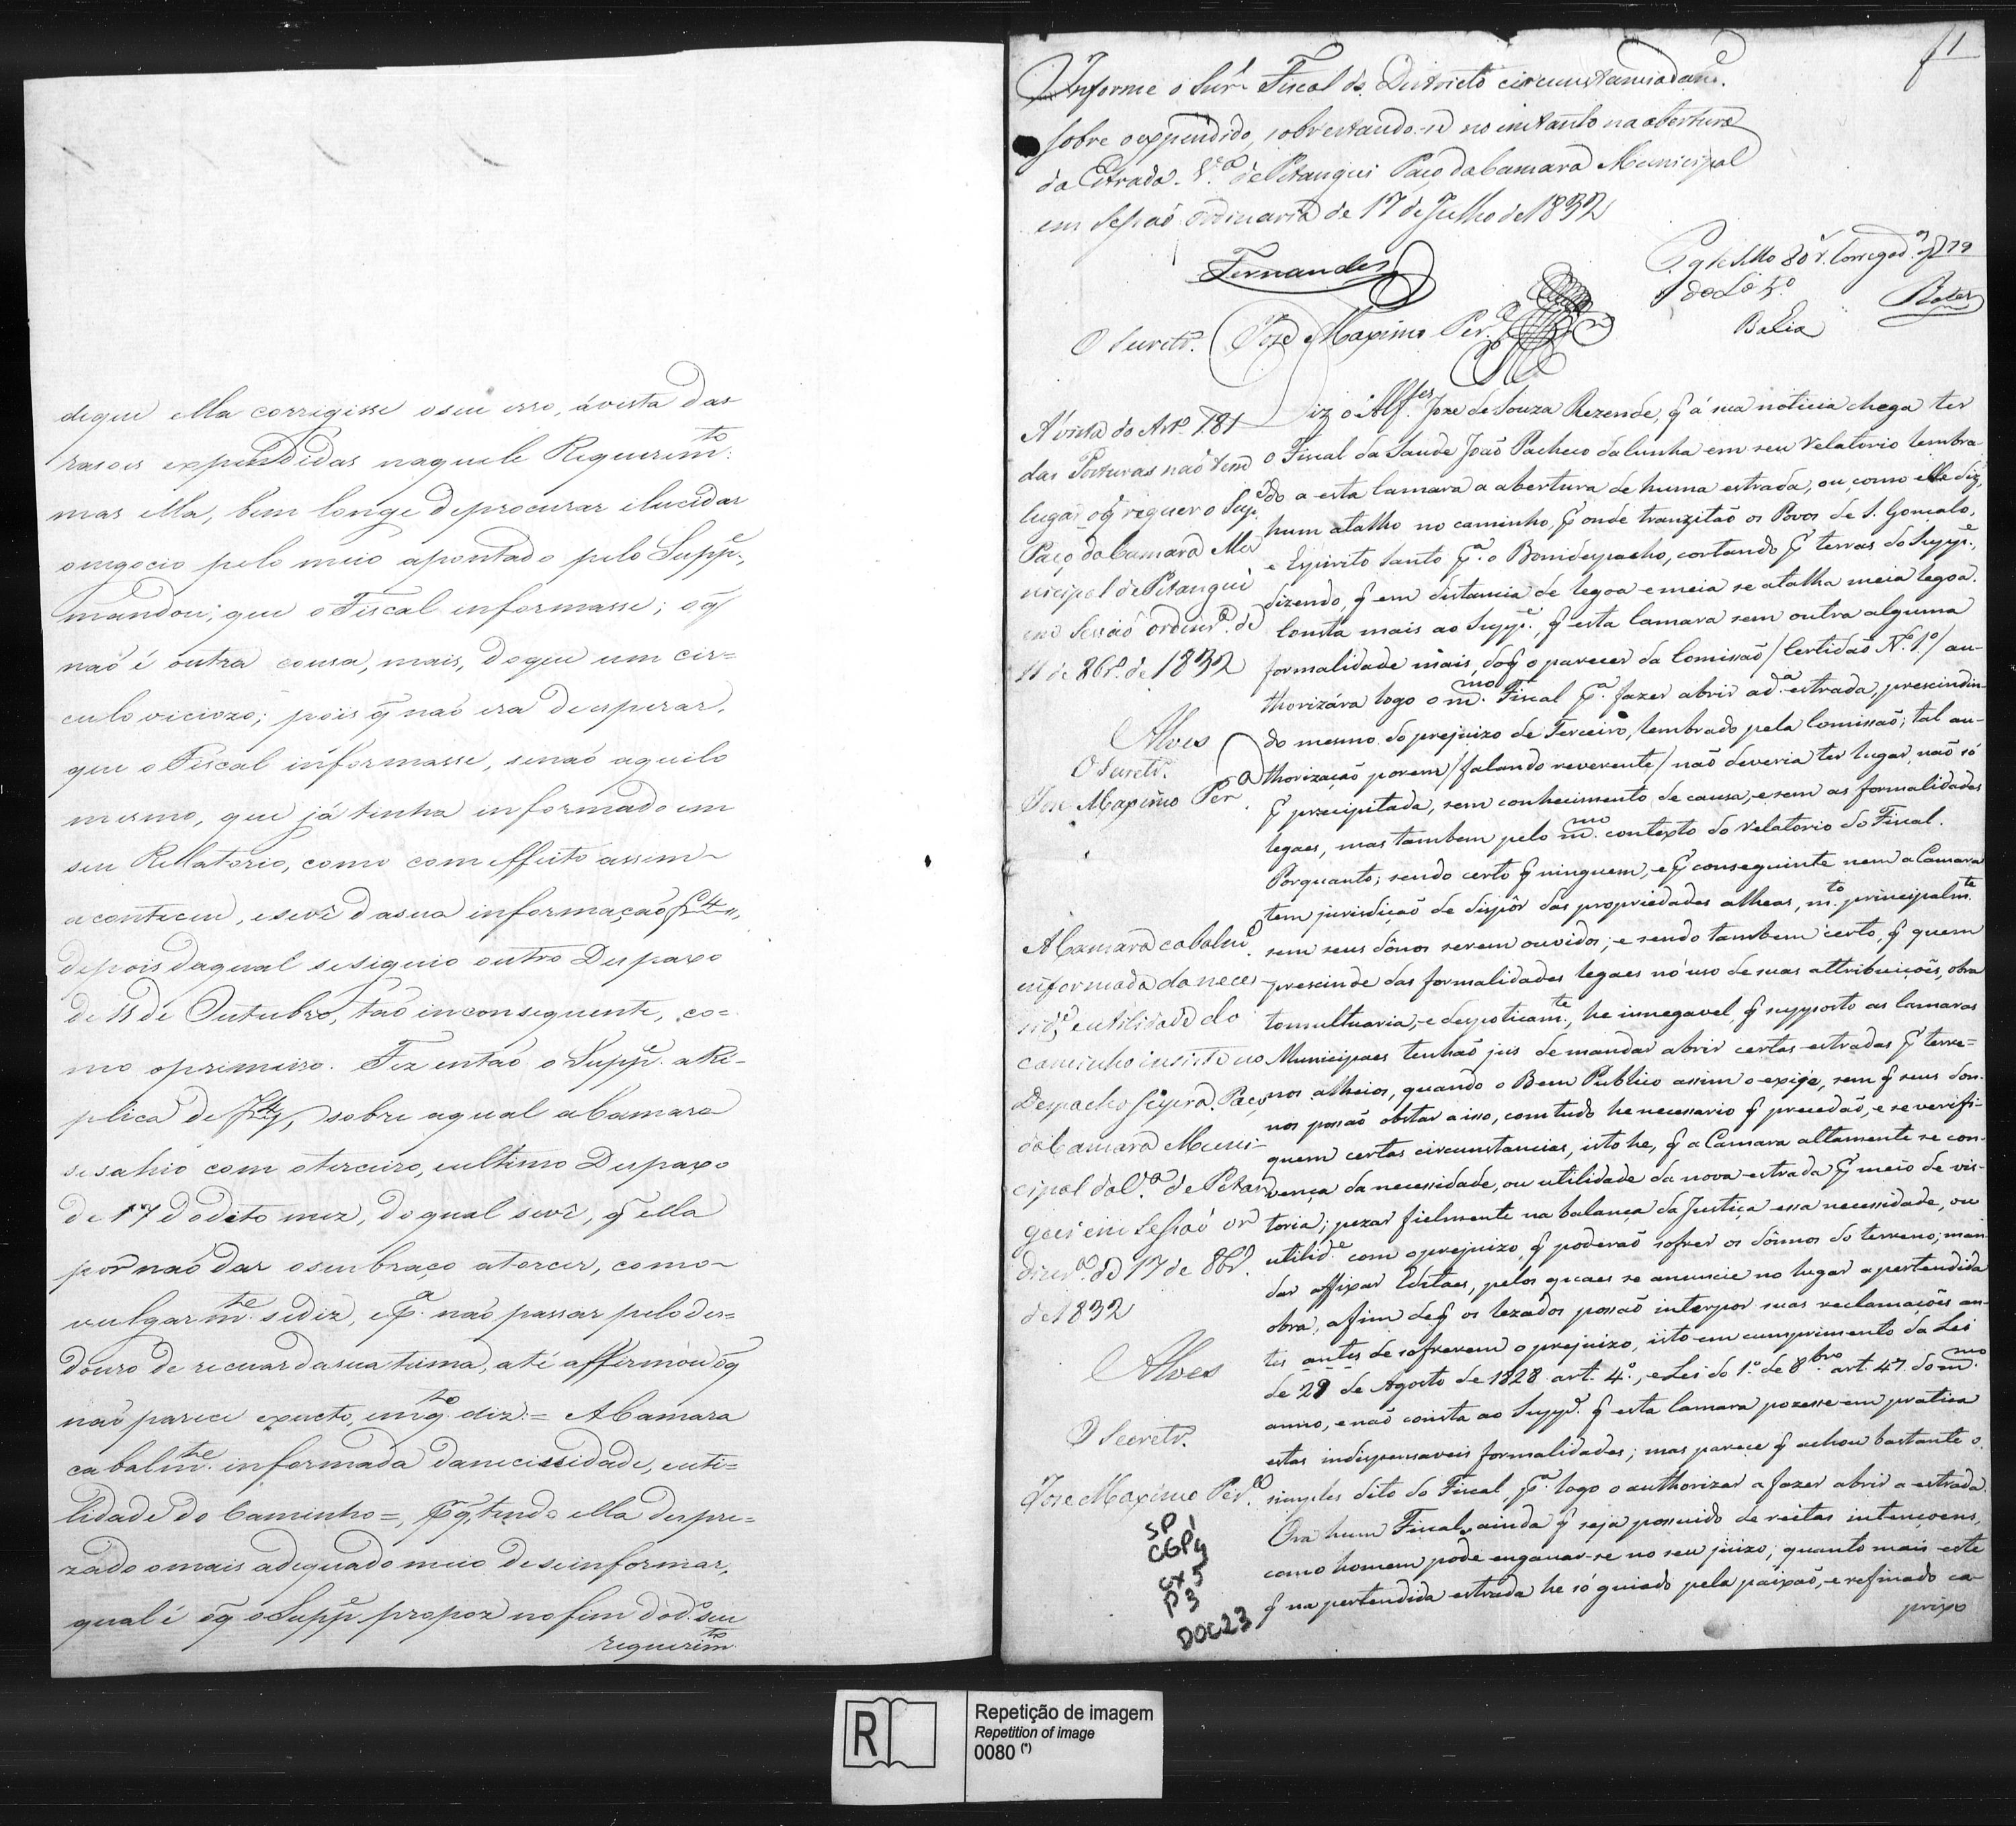 dequе ella corrigisse o seu erro, á vista das
rasoes expendidas naquele Requerim.to:
mas ella, bem longe deprocurar elucidar
o negocio pelo meio apontado pelo Supp.e,
mandou; que o Fiscal informasse; o q̃
naõ é outra cousa, mais, doque um cir=
culo viciozo; pois q̃ naõ era de esperar,
que o Fiscal informasse, senaõ aquilo
mesmo, que já tinha informado em
seu Rellatorio, como com effeito assim
aconteceu, e se vê da sua informaçaõ f 4,
depois daqual se siguio outro Despaxo
de 11 de Outubro, taõ inconsequente, co=
mo o primeiro. Fez entaõ o Supp.e a Re-
plica de f 4, sobre aqual a Camara
se sahio com o terceiro, e ultimo Despaxo
de 17 do dito mez, do qual se vê, q̃ ella
por naõ dar o seu braço a torcer, como
vulgarm.te se diz, e p.a naõ passar pelo des=
douro de recuar da sua teima, até affirmou o q̃
naõ parece exacto, em q.to diz = A Camara
cabalm.te informada da necissidade, e uti=
lidade do Caminho =, p.q̃, tendo ella despre=
zado o mais adequado meio de se informar,
qual é o q̃ o Supp.e propoz no fim do d.o seu
requerim.to
f 1
Informe o Snr. Fiscal do Districto circunstanciadam.e
sobre o expendido, sobrestando-se no entanto na abertura
da Estrada. V.a de Pitangui Paço da Camara Municipal
em Sessaõ Ordinaria de 17 de Julho de 1832
Fernandes
O Secretr.o Joze Maximo Per.a
Balia
Á vista do Art.o 181
das Posturas naõ tem
lugar o q̃ requer o Sup.e
Paço da Camara Mu
nicipal de Pitangui
em Sessaõ ordinr.a de
11 de 8br.o de 1832
Alves
O Secretr.o
Joze Maximo Per.a
A Camara cabalm.e
informada da neces
sid.e, e utilidade do
caminho insiste no
Despacho supra. Paço
da Camara Muni-
cipal da V.a de Pitan
gui em Sessaõ or
dinr.a de 17 de 8br.o
de 1832
Alves
O Secretr.o
Joze Maximo Per.a
SP
CGP4
CX 5
P3
DOC23
Diz o Alf.es Joze de Souza Rezende, q̃ á sua noticia chega ter
o Fiscal da Saude Joaõ Pacheco da Cunha em seu Relatorio lembra
do a esta Camara a abertura de huma estrada, ou, como elle diz,
hum atalho no caminho, p.r onde tranzitaõ os Povos de S. Gonçalo,
e Espirito Santo p.a o Bomdespacho, cortando p.r terras do Supp.e,
dizendo, q̃ em distancia de legoa e meia se atalha meia legoa.
Consta mais ao Supp.e, q̃ esta Camara sem outra alguma
formalidade mais, doq̃ o parecer da Comissaõ / Certidaõ N.o 1.o / au-
thorizára logo o m.mo Fiscal p.a fazer abrir a d.a estrada, prescindin-
do mesmo do prejuizo de Terceiro, lembrado pela Comissaõ; tal au-
thorizaçaõ porem / falando reverente / naõ deveria ter lugar, naõ só
p.r precipitada, sem conhecimento de causa, e sem as formalidades
legaes, mas tambem pelo m.mo contexto do Relatorio do Fiscal.
Porquanto; sendo certo q̃ ninguem, e p.r conseguinte nem a Camara
tem jurisdiçaõ de dispôr das propriedades alheas, m.to principalm.te
sem seus dônos serem ouvidos; e sendo tambem certo, q̃ quem
prescinde das formalidades legaes no uso de suas attribuiçoẽs, obra
tomultuaria, e despoticam.te, he innegavel, q̃ supposto as Camaras
Municipaes tenhaõ jus de mandar abrir certas estradas p.r terre=
nos alheios, quando o Bem Publico assim o exige, sem q̃ seus don-
nos possaõ obstar a isso, comtudo he necessario q̃ precedaõ, e se verifi-
quem certas circumstancias, isto he, q̃ a Camara altamente se con-
vença da necessidade, ou utilidade da nova estrada p.r meio de vis-
toria; pezar fielmente na balança da Justiça essa necessidade, ou
utilid.e com o prejuizo, q̃ poderaõ sofrer os dônnos do terreno; man
dar affixar Editaes, pelos quaes se anuncie no lugar a pertendida
obra, afim deq̃ os lezados possaõ interpor suas reclamaçoẽs an
tes antes de sofrerem o prejuizo, isto em cumprimento da Lei
de 29 de Agosto de 1828 art. 4.o, e Lei do 1.o de 8bro art. 47. do m.mo
anno, e naõ consta ao Supp.e q̃ esta Camara pozesse em pratica
estas indispensaveis formalidades; mas parece q̃ achou bastante o
simples dito do Fiscal, p.a logo o authorizar a fazer abrir a estrada.
Ora hum Fiscal, ainda q̃ seja possuido de rectas intençoens,
como homem pode enganar-se no seu juizo; quanto mais este
q̃ na pertendida estrada he só guiado pela paixaõ, e refinado ca
prixo
R
Repetição de imagem
Repetition of image
0080 (*)